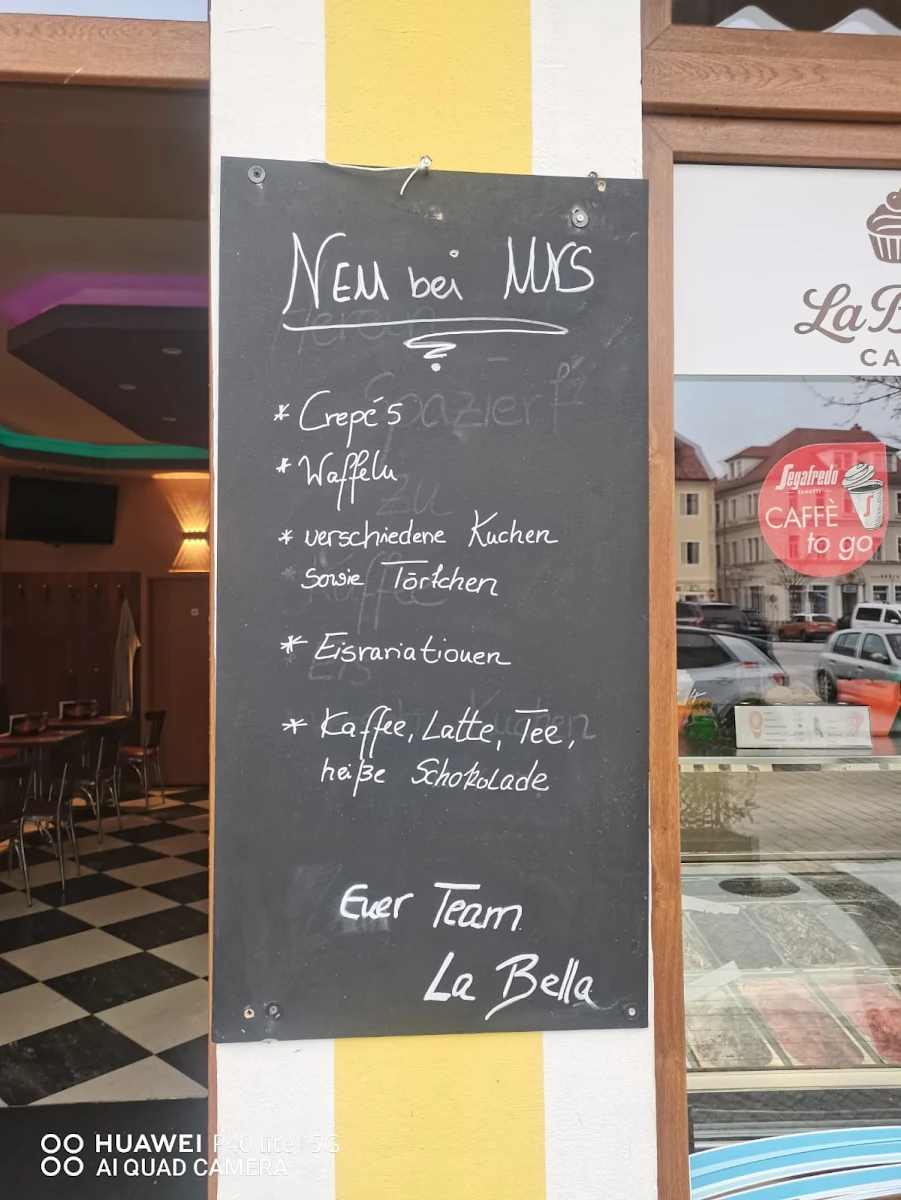 NEU bei UNS
* Crepé's
* Waffeln
* verschiedene Kuchen
sowie Törtchen
* Eisvariationen
* Kaffee, Latte, Tee,
heiße Schokolade
Euer Team
La Bella
La B
CA
Segafredo
ZANETTI
CAFFÈ
to go
HUAWEI P40 lite 5G
AI QUAD CAMERA